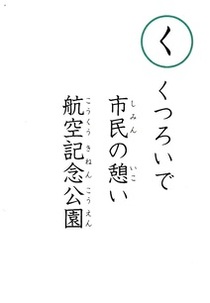 く
くつろいで
市民の憩い
航空記念公園
しみん
いこ
こうくう きねん こうえん